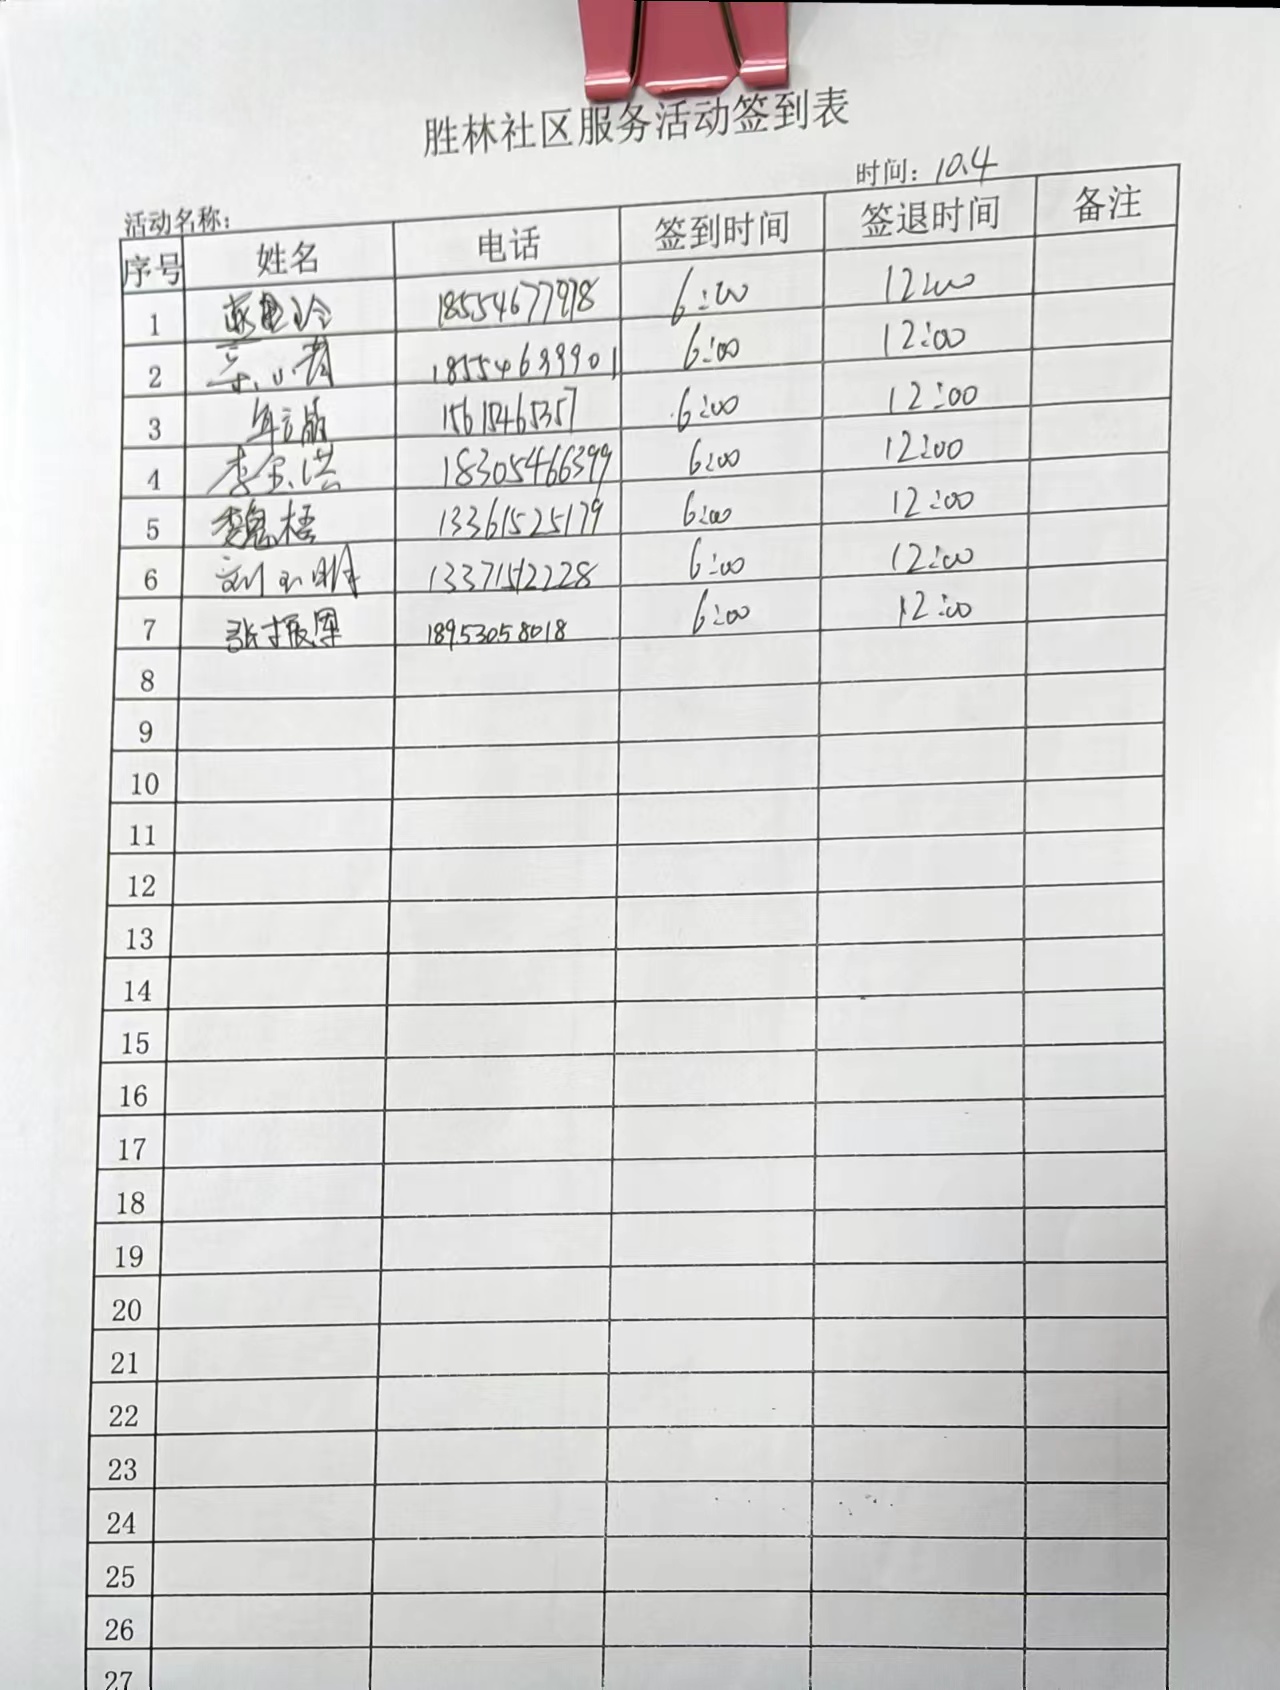 胜林社区服务活动签到表
时间：10.4
活动名称：
序号 姓名 电话 签到时间 签退时间 备注
1 18554677978 6:00 12:00
2 18554699901 6:00 12:00
3 15615465357 6:00 12:00
4 李宝洪 18305466399 6:00 12:00
5 魏梧 13361525179 6:00 12:00
6 刘玉明 13371512228 6:00 12:00
7 张振军 18953058018 6:00 12:00
8
9
10
11
12
13
14
15
16
17
18
19
20
21
22
23
24
25
26
27